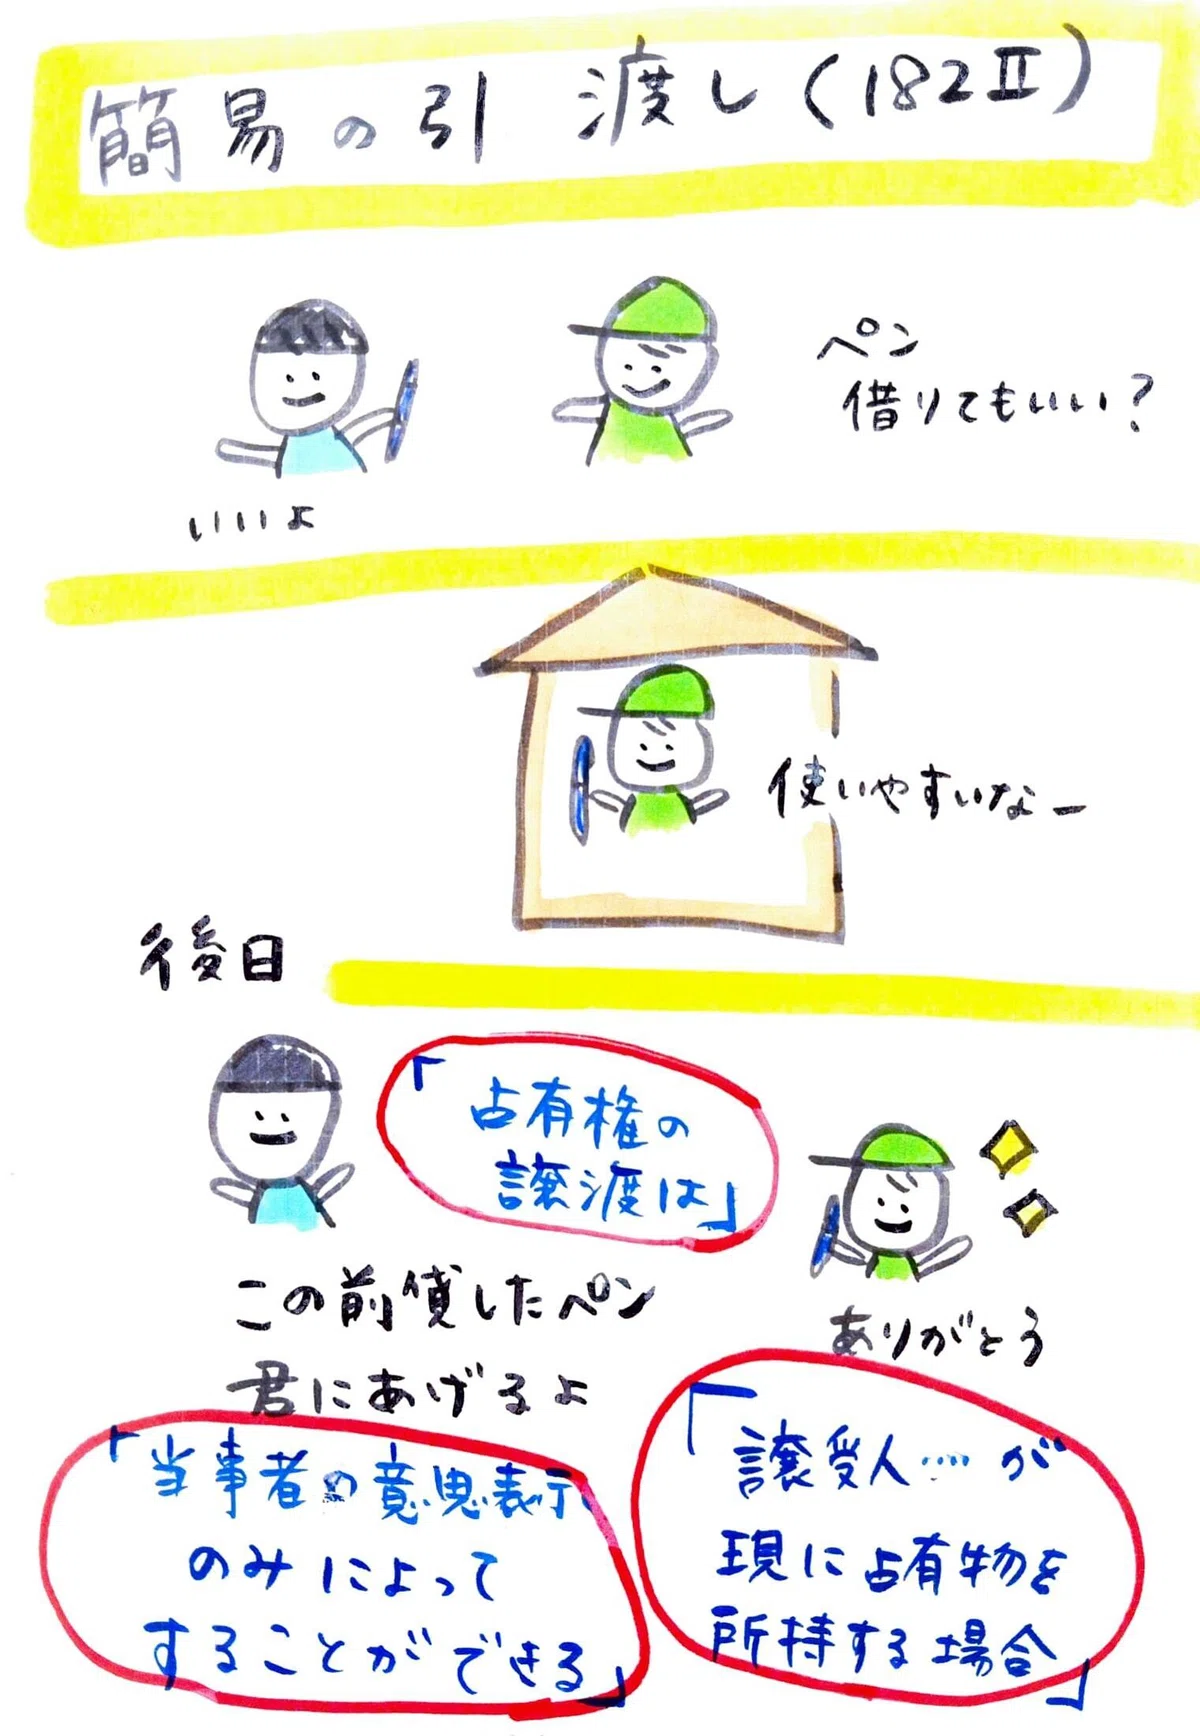 簡易の引渡し(182Ⅱ)
ペン
借りてもいい?
いいよ
使いやすいなー
後日
「占有権の
譲渡は」
この前貸したペン
君にあげるよ
ありがとう
「当事者の意思表示
のみによって
することができる」
「譲受人……が
現に占有物を
所持する場合」